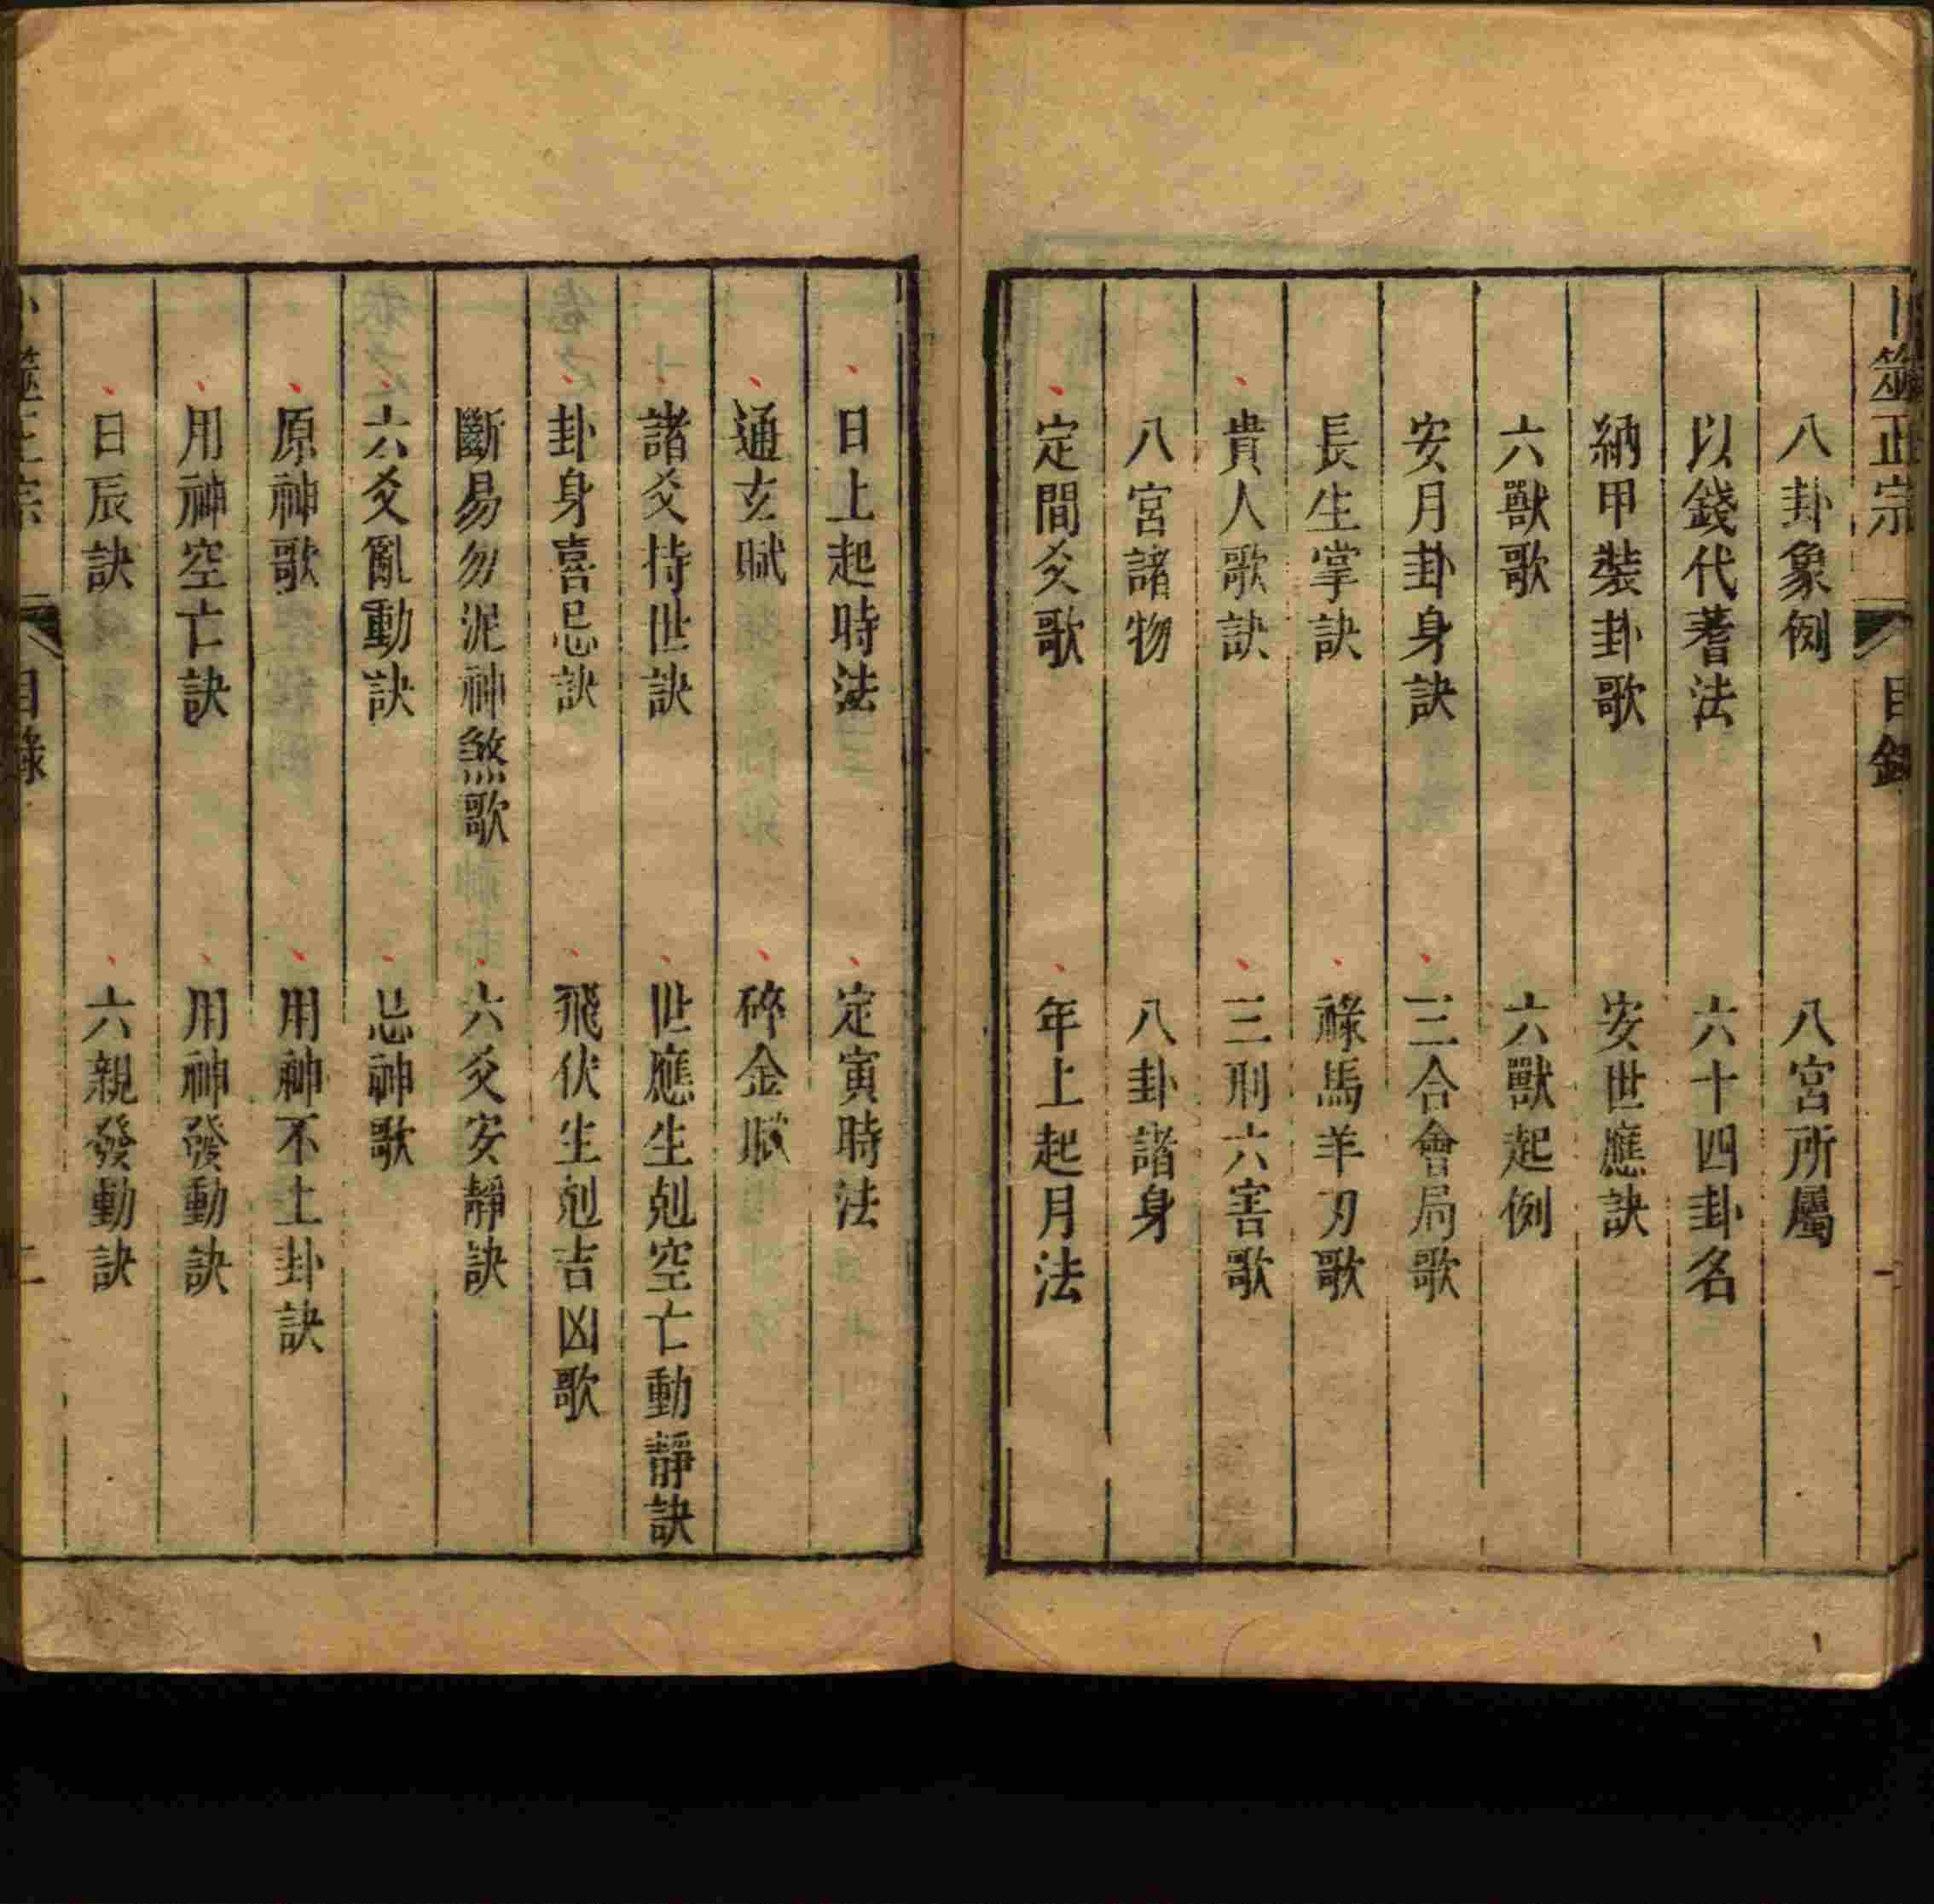 卜筮正宗 目錄 一
八卦象例 八宮所屬
以錢代蓍法 六十四卦名
納甲裝卦歌 安世應訣
六獸歌 六獸起例
安月卦身訣 三合會局歌
長生掌訣 祿馬羊刃歌
貴人歌訣 三刑六害歌
八宮諸物 八卦諸身
定間爻歌 年上起月法
日上起時法 定寅時法
通玄賦 碎金賦
諸爻持世訣 世應生剋空亡動靜訣
卦身喜忌訣 飛伏生剋吉凶歌
斷易勿泥神煞歌 六爻安靜訣
六爻亂動訣 忌神歌
原神歌 用神不上卦訣
用神空亡訣 用神發動訣
日辰訣 六親發動訣
卜筮正宗 目錄 二